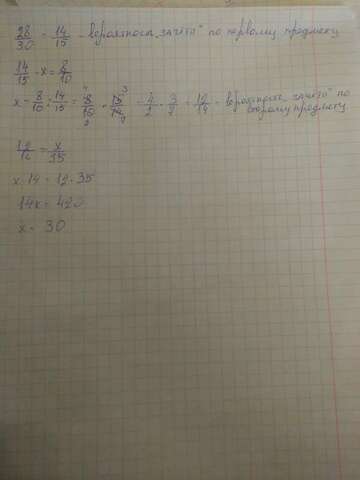 28/30 = 14/15 - вероятность "зачёта" по первому предмету
14/15 · x = 8/10
x = 8/10 : 14/15 = 8/10 · 15/14 = 4/2 · 3/7 = 12/14 - вероятность "зачёта" по второму предмету
12/14 = x/35
x · 14 = 12 · 35
14x = 420
x = 30